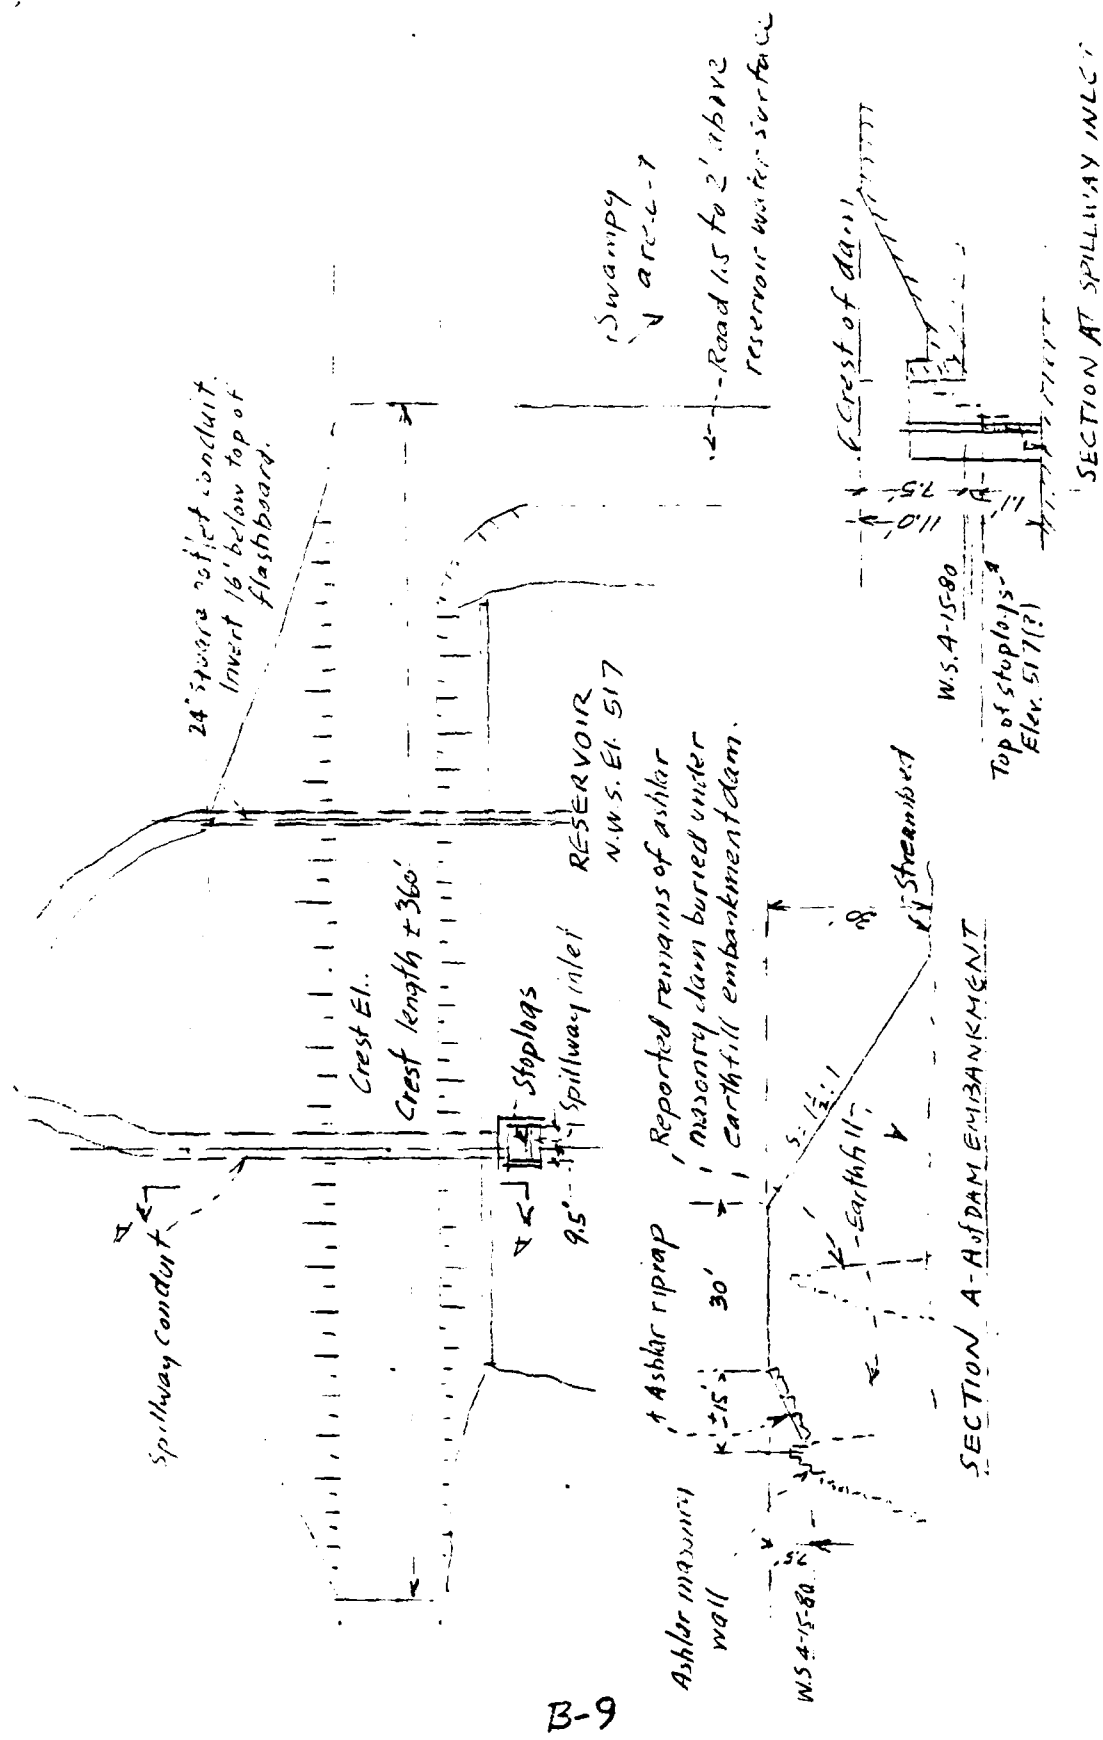 24" square outlet conduit.
Invert 16' below top of
flashboard.
Spillway conduit
Crest El..
Crest length ± 360'
Stoplogs
Spillway inlet
9.5'
RESERVOIR
N.W.S. El. 517
Swampy
area
Road 1.5 to 2' above
reservoir water surface
Ashlar masonry
wall
Ashlar riprap
Reported remains of ashlar
masonry dam buried under
earthfill embankment dam.
±15'
30'
7.5'
W.S 4-15-80
S = 1½ : 1
Earthfill
Streambed
SECTION A-A of DAM EMBANKMENT
Crest of dam
7.5'
11.0'
1.1'
W.S. 4-15-80
Top of stoplogs
Elev. 517(?)
SECTION AT SPILLWAY INLET
B-9